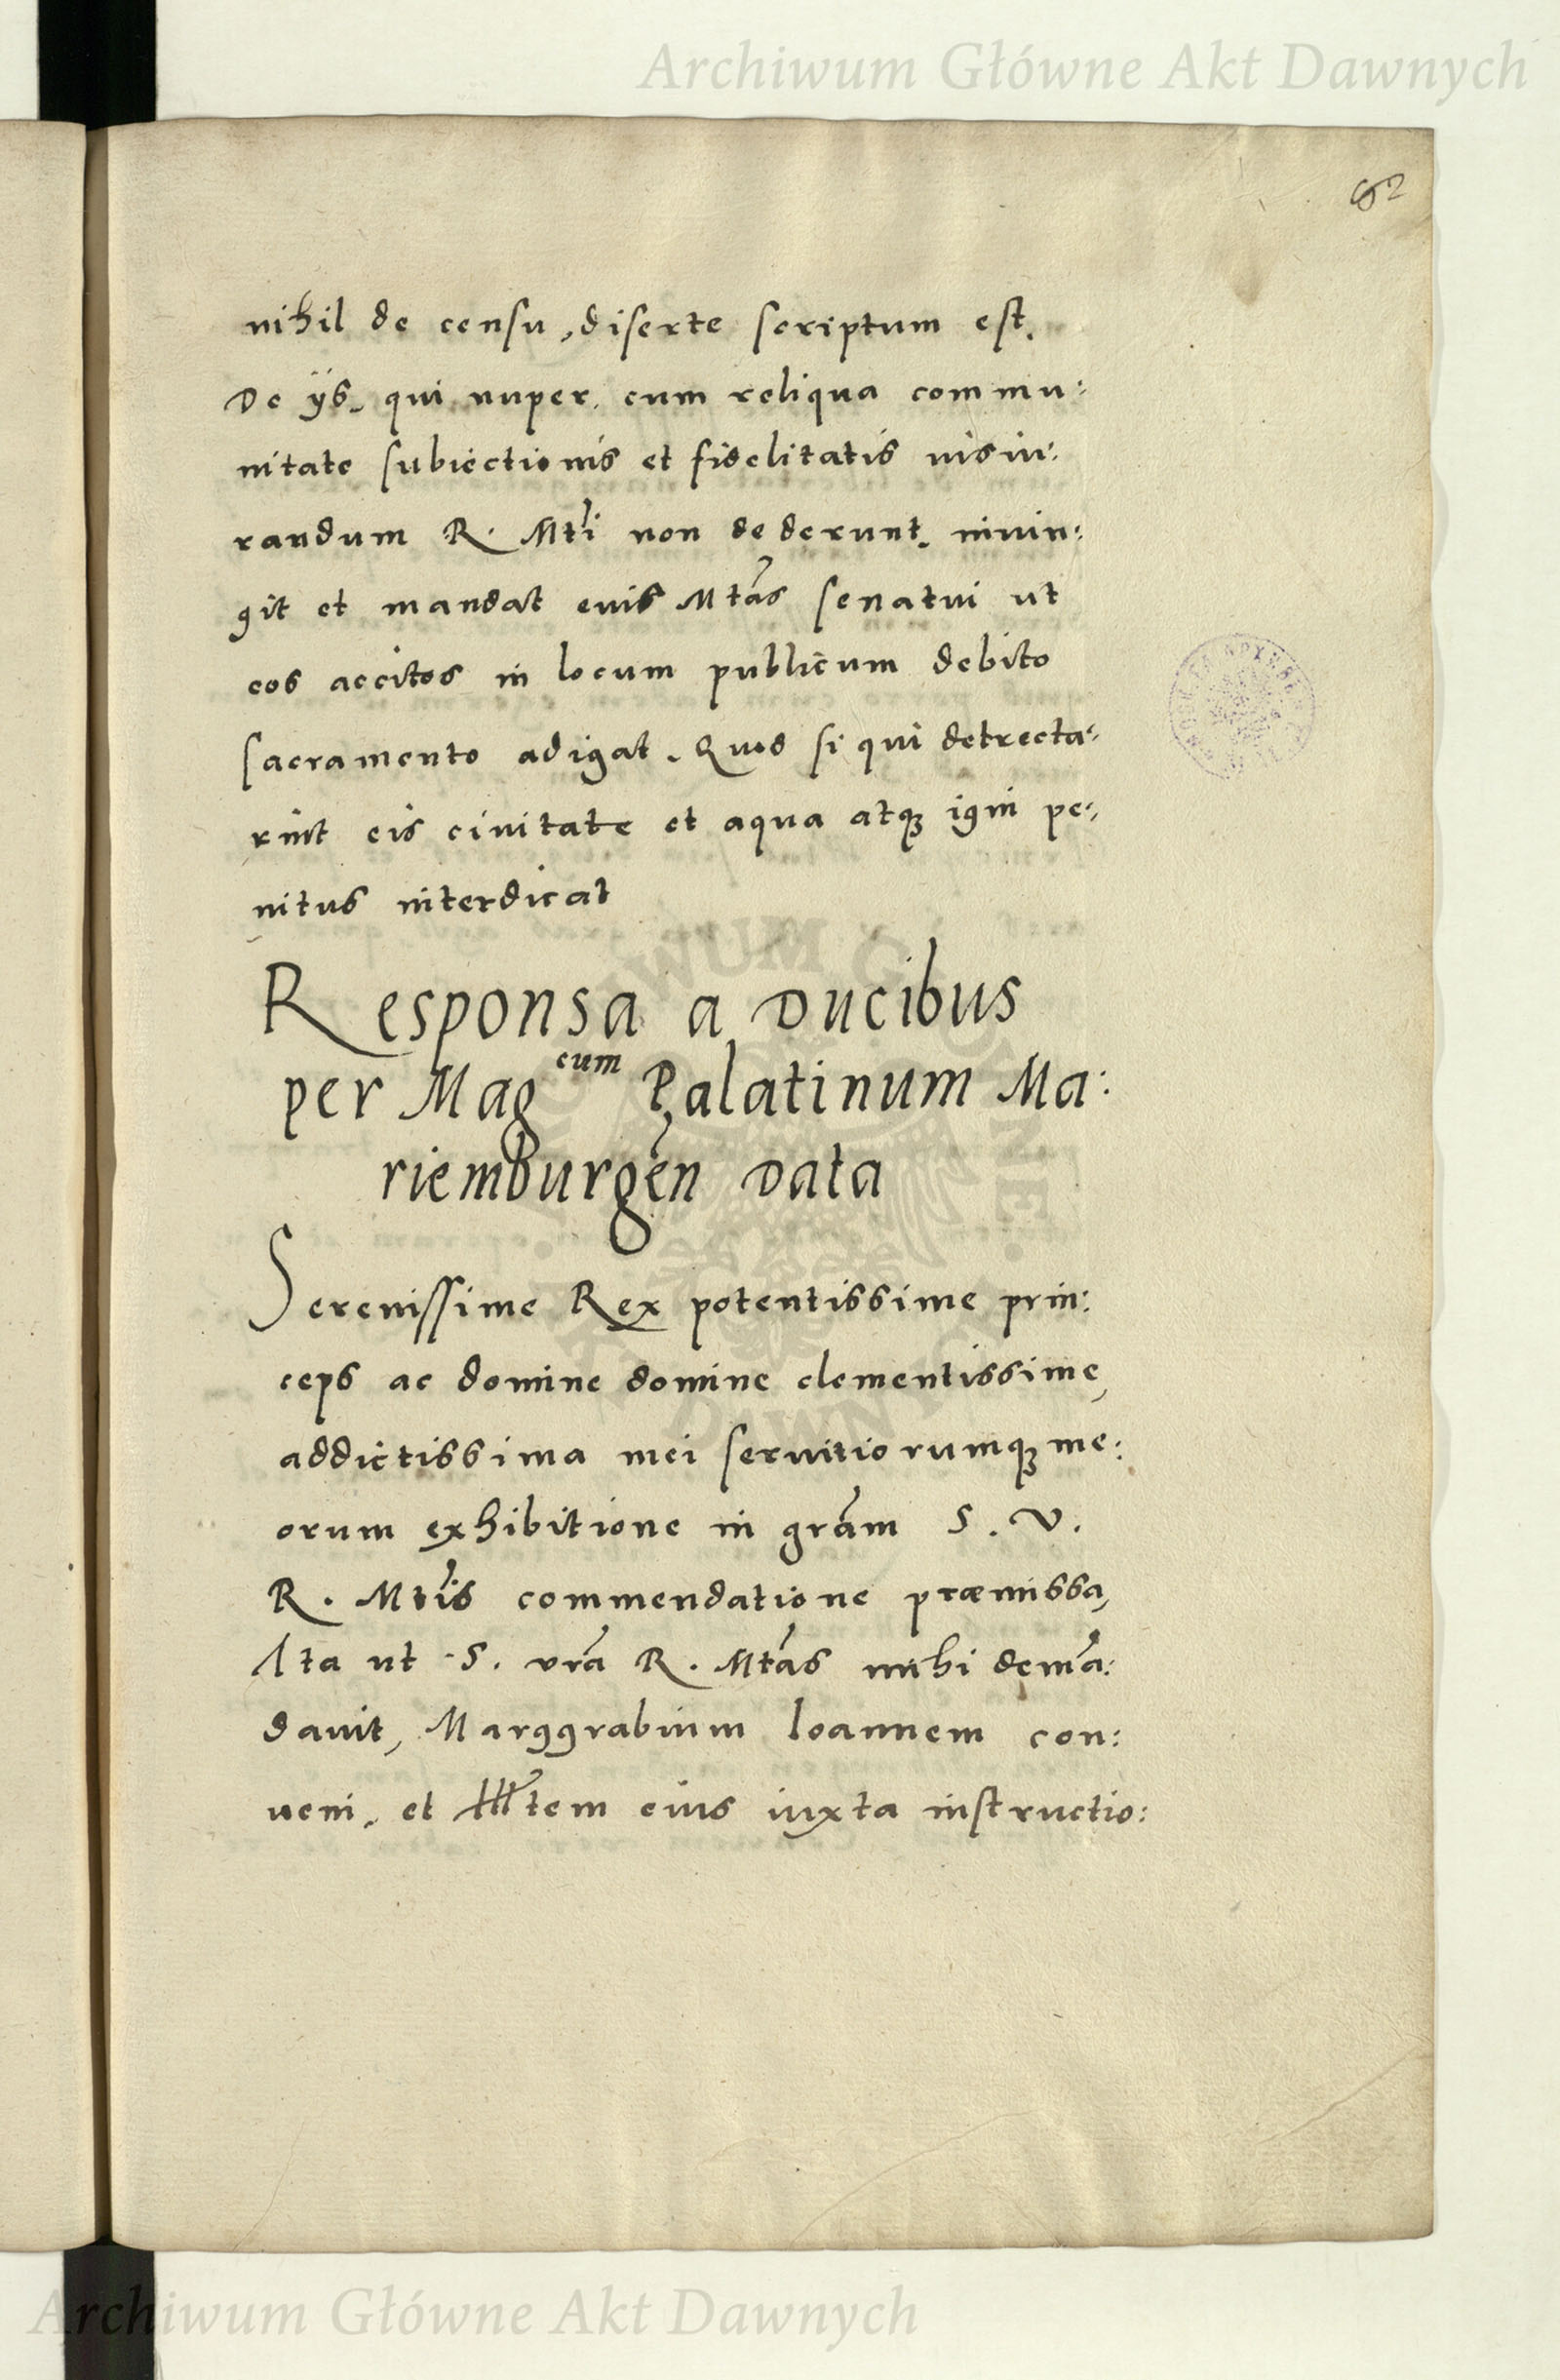 Archiwum Główne Akt Dawnych
62
nihil de censu, diserte scriptum est.
De ijs, qui nuper cum reliqua commu:
nitate subiectionis et fidelitatis iusiu:
randum R. Mti non dederunt, iniun:
git et mandat eius Mtas senatui ut
eos accitos in locum publicum debito
sacramento adigat. Quod si qui detrecta:
rint eis civitate et aqua atq; igni pe:
nitus interdicat
Responsa a Ducibus
per Magcum Palatinum Ma:
riemburgen Data
Serenissime Rex potentissime prin:
ceps ac domine domine clementissime,
addictissima mei servitiorumq; me:
orum exhibitione in gram S. V.
R. Mtis commendatione præmissa,
Ita ut S. vra R. Mtas mihi demā:
davit, Marggrabium Ioannem con:
veni, et Illtem eius iuxta instructio:
Archiwum Główne Akt Dawnych